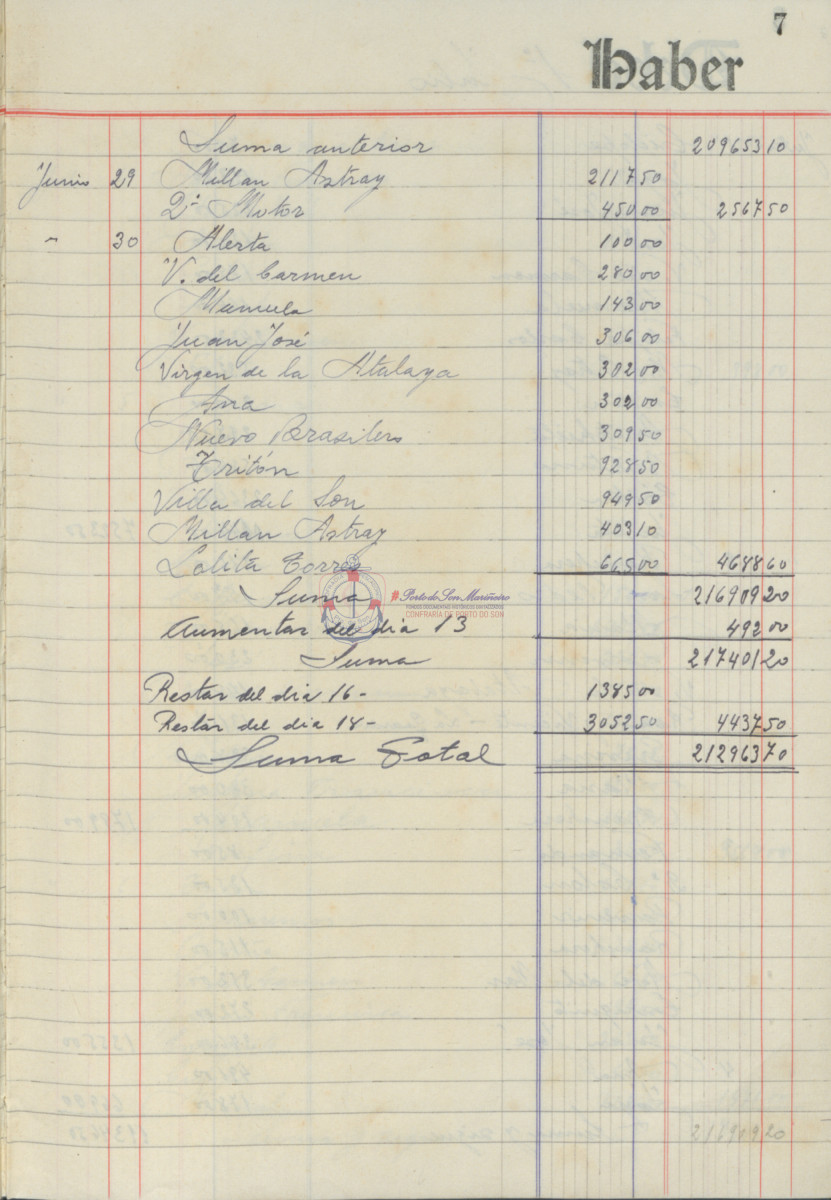 7
Haber
Suma anterior 20965310
Junio 29 Millan Astray 211750
2º Motor 45000 256750
" 30 Alerta 10000
V. del Carmen 28000
Mamula 14300
Juan José 30600
Virgen de la Atalaya 30200
Ana 30200
Nuevo Brasilero 30950
Tritón 92850
Villa del Son 94950
Millan Astray 40310
Lolita Torres 66500 468860
Suma 21690920
Aumentar del dia 13 49200
Suma 21740120
Restar del dia 16- 138500
Restar del dia 18- 305250 443750
Suma Total 21296370
#Porto do Son Mariñeiro
CONFRARÍA DE PORTO DO SON